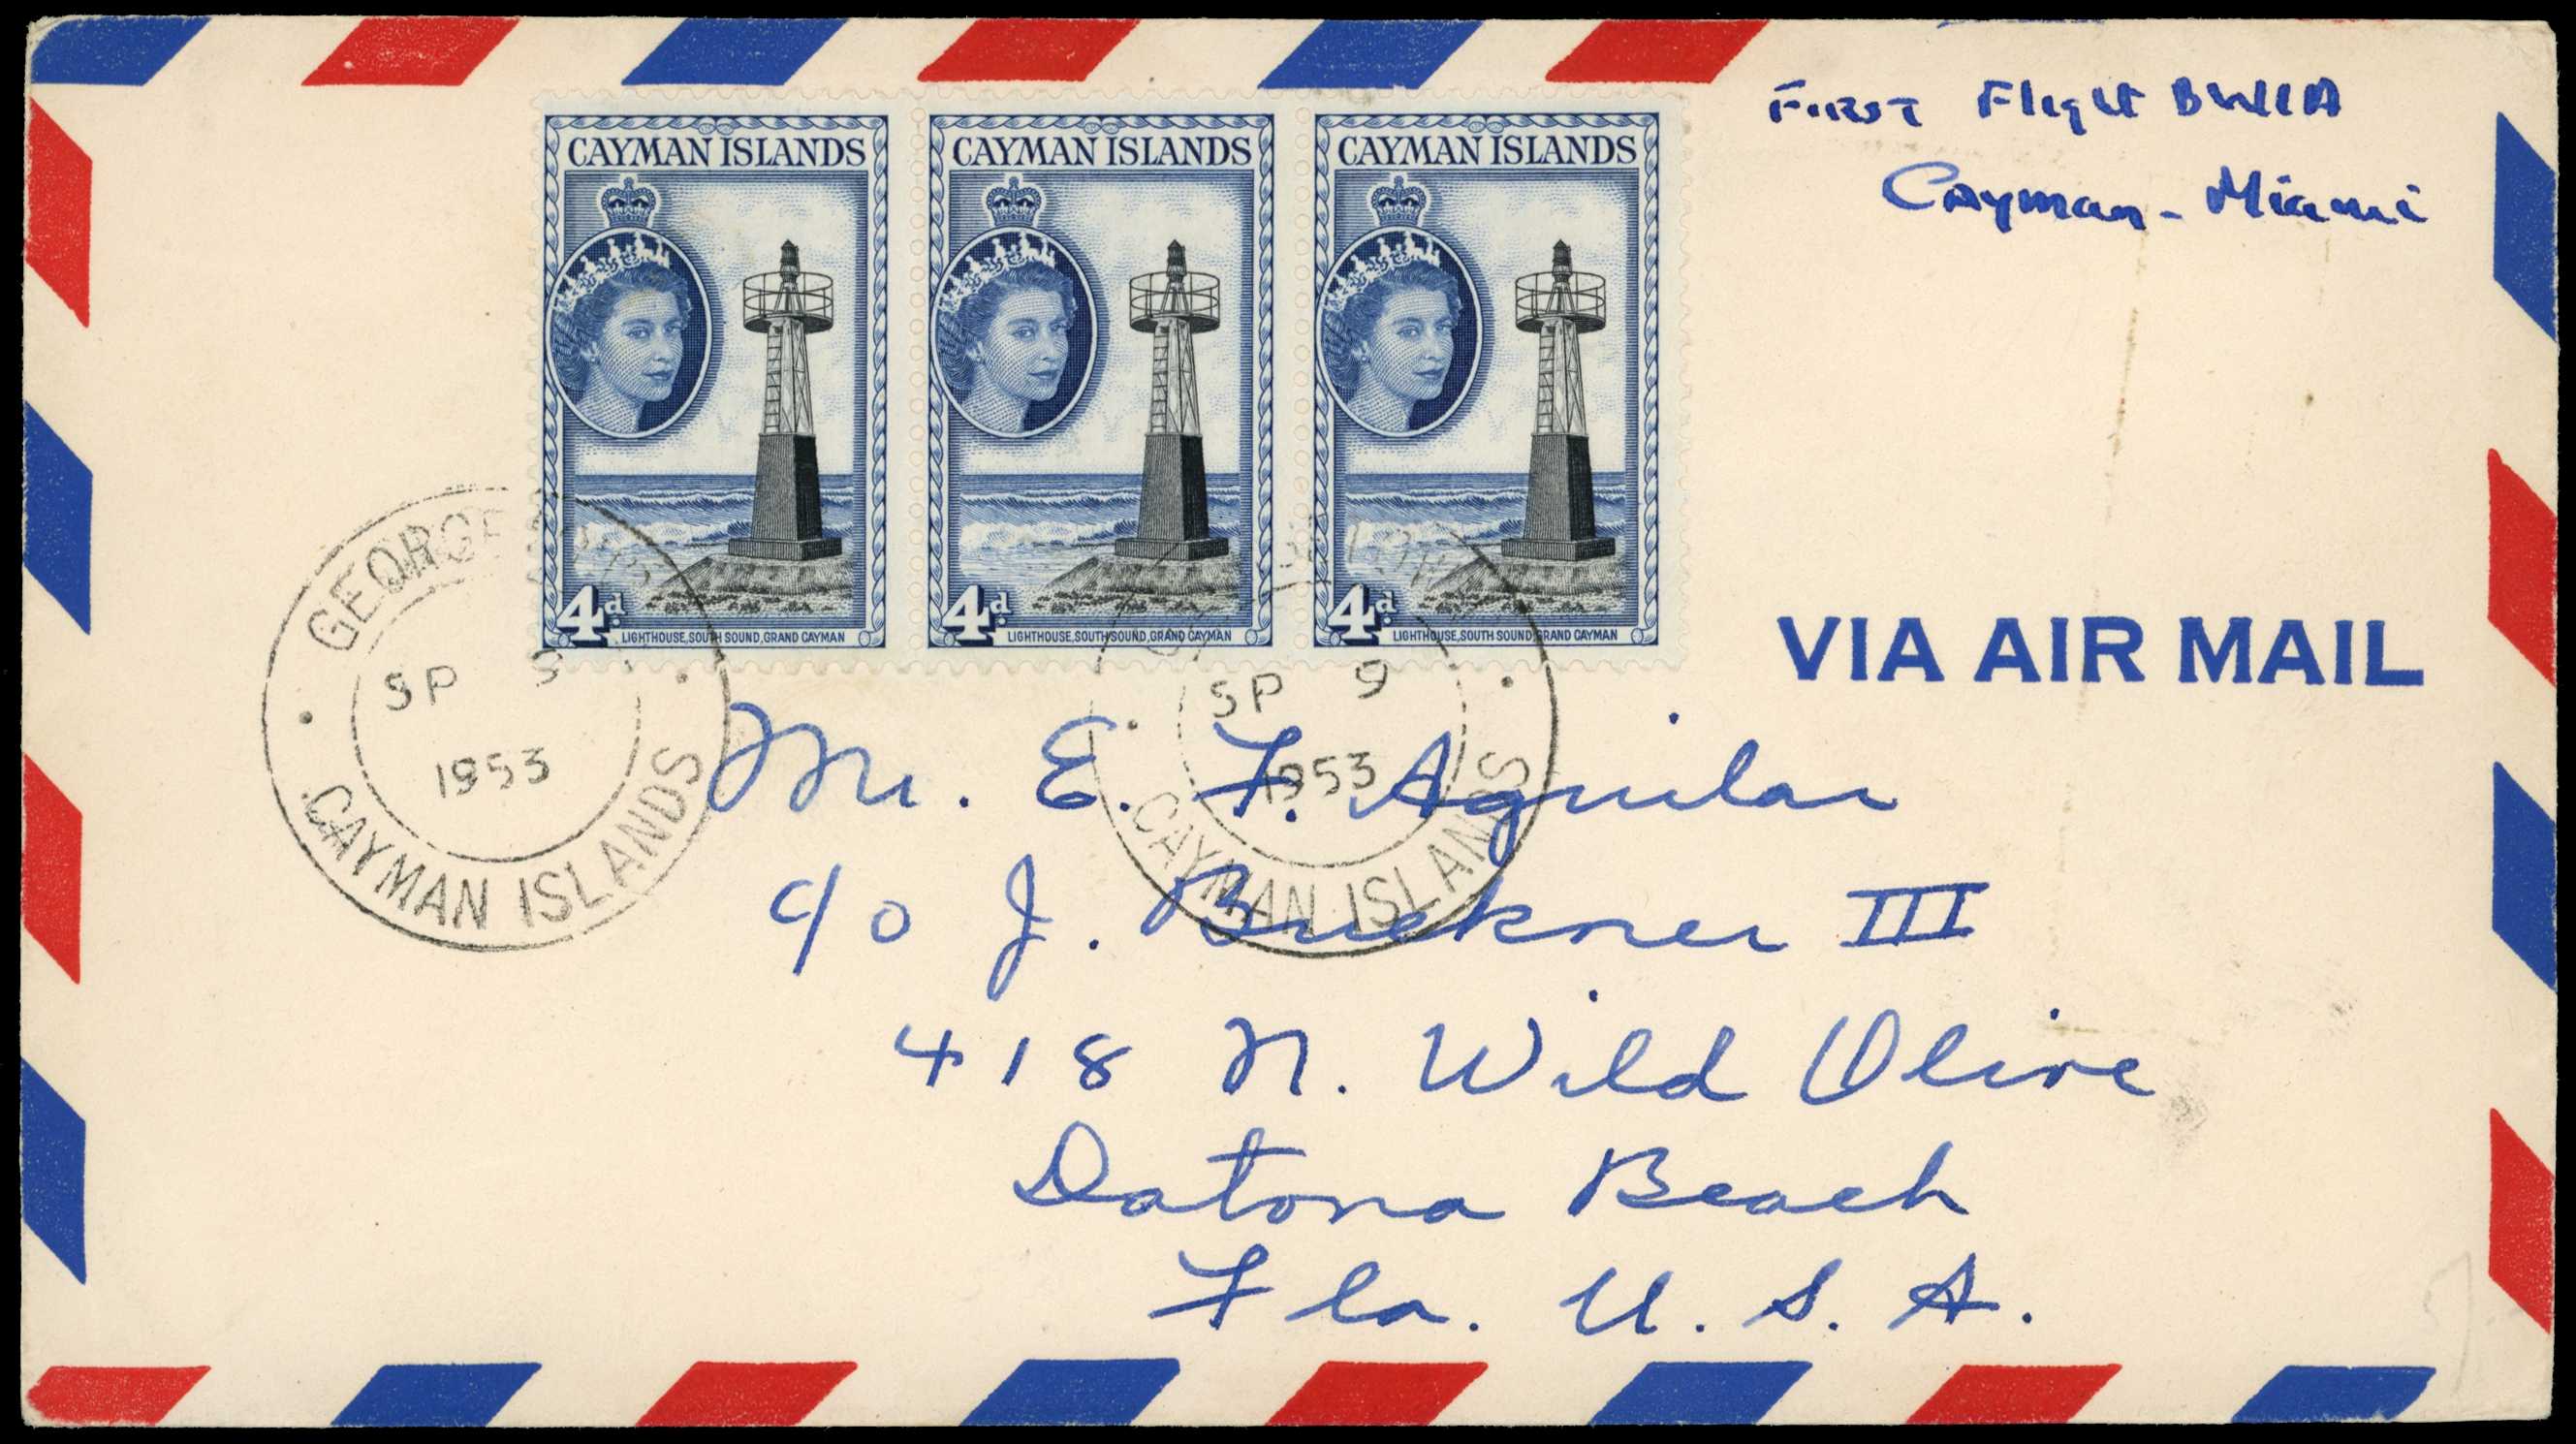 First Flight BWIA
Cayman - Miami
CAYMAN ISLANDS
4d.
LIGHTHOUSE, SOUTH SOUND, GRAND CAYMAN
CAYMAN ISLANDS
4d.
LIGHTHOUSE, SOUTH SOUND, GRAND CAYMAN
CAYMAN ISLANDS
4d.
LIGHTHOUSE, SOUTH SOUND, GRAND CAYMAN
GEORGE
SP 9
1953
CAYMAN ISLANDS
SP 9
1953
CAYMAN ISLANDS
VIA AIR MAIL
Mr. E. F. Aguilar
c/o J. Bruekner III
418 N. Wild Olive
Datona Beach
Fla. U. S. A.